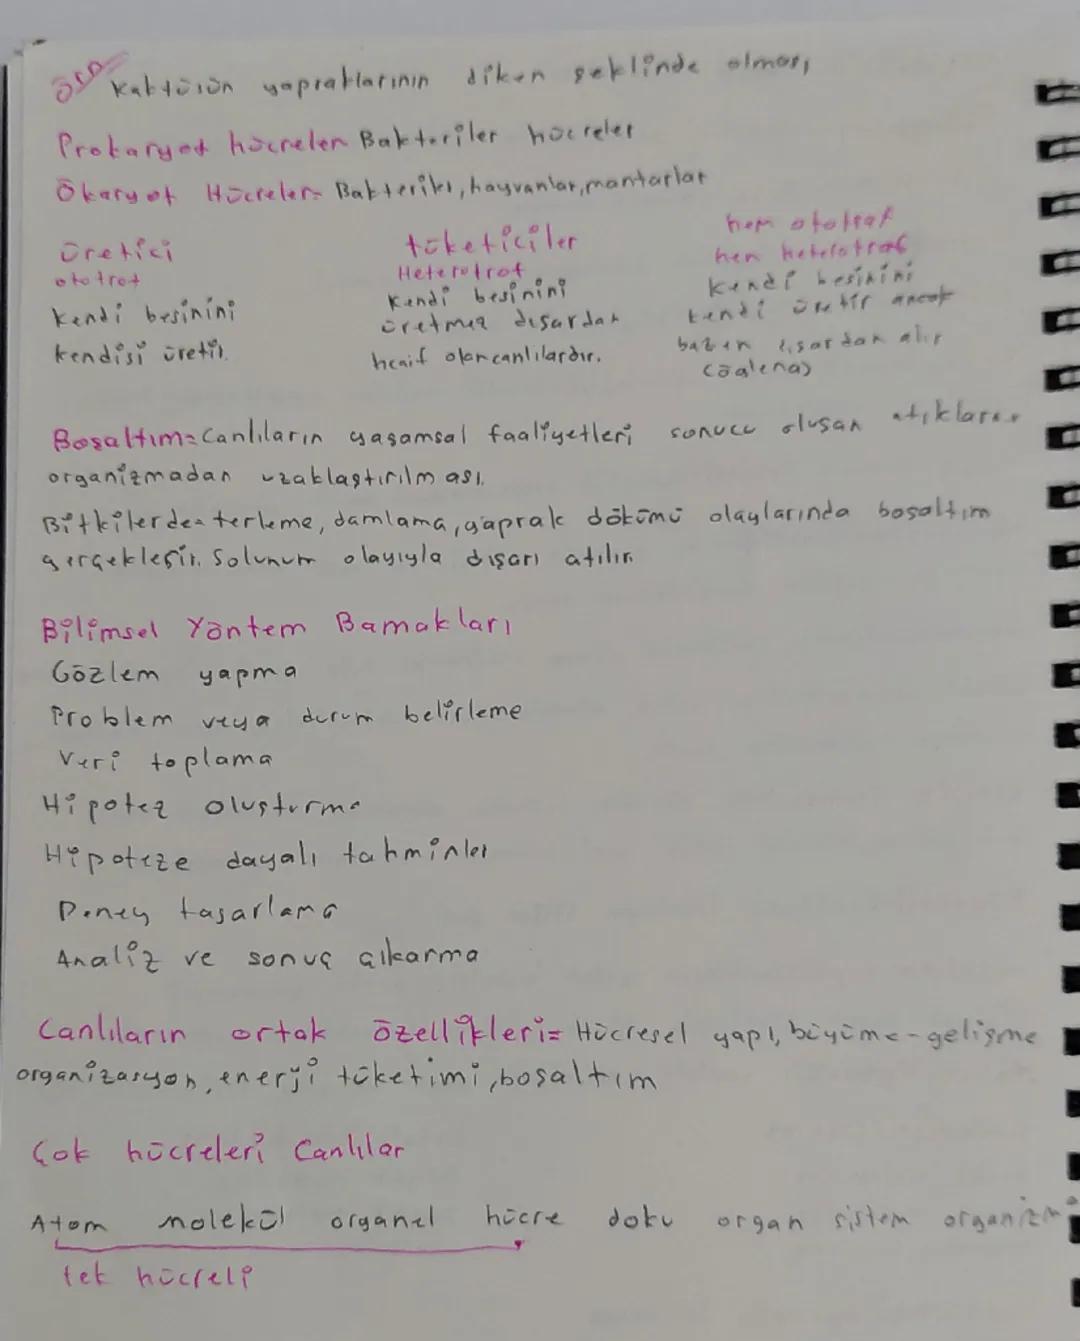 Kaktüsün yapraklarının diken şeklinde olması
Prokaryot hücreler Bakteriler hücreler
Ökaryot Hücreler= Bakteriler, hayvanlar, mantarlar
üretici
ototrof
kendi besinini
kendisi üretir.
tüketiciler
Heterotrof
Kendi besinini
üretmez dışardan
olan canlılardır.
hem ototrof
hem heterotrof
kendi besinini
kendi üretir ancak
bazen dışardan alır
(öglena)
Boşaltım= Canlıların yaşamsal faaliyetleri sonucu oluşan atıkların
organizmadan uzaklaştırılması.
Bitkilerde= terleme, damlama, yaprak dökümü olaylarında boşaltım
gerçekleşir. Solunum olayıyla dışarı atılır.
Bilimsel Yöntem Bamakları
Gözlem yapma
Problem veya durum belirleme
Veri toplama
Hipotez oluşturma
Hipoteze dayalı tahminler
Deney tasarlama
Analiz ve sonuç çıkarma
Canlıların ortak özellikleri= Hücresel yapı, büyüme-gelişme
organizasyon, enerji tüketimi, boşaltım
Çok hücreleri Canlılar
Atom molekül organel hücre doku organ sistem organizma
tek hücreli